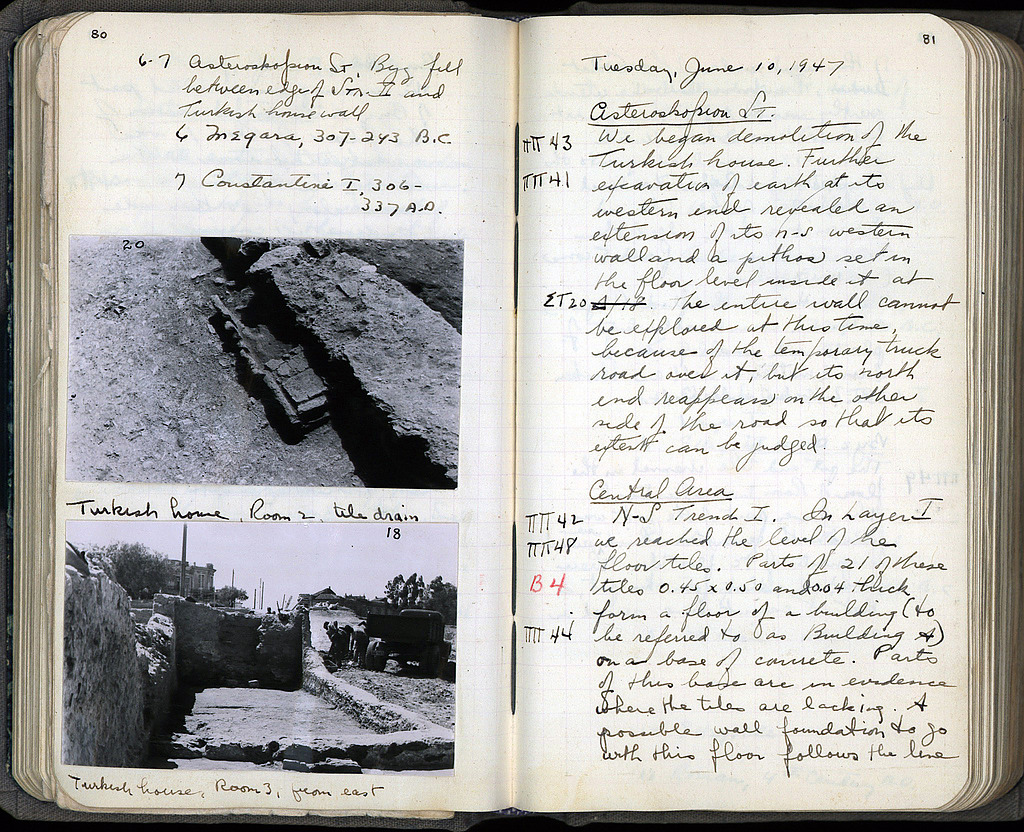 80
6-7 Asteroskopion St, Byz fill
between edge of Str. I and
Turkish house wall
6 Megara, 307-243 B.C
7 Constantine I, 306-
337 A.D.
20
Turkish house, Room 2, tile drain
18
Turkish house, Room 3, from east
81
Tuesday, June 10, 1947
Asteroskopion St.
ΠΠ 43 We began demolition of the
Turkish house. Further
ΠΠ 41 excavation of earth at its
western end revealed an
extension of its N-S western
wall and a pithos set in
the floor level inside it at
ΣΤ 20 Δ/18. The entire wall cannot
be explored at this time,
because of the temporary truck
road over it, but its north
end reappears on the other
side of the road so that its
extent can be judged.
Central Area
ΠΠ 42 N-S Trench I. In Layer I
ΠΠ 48 we reached the level of the
floor tiles. Parts of 21 of these
B 4 tiles 0.45 x 0.50 and 0.04 thick
form a floor of a building (to
ΠΠ 44 be referred to as Building A)
on a base of concrete. Parts
of this base are in evidence
where the tiles are lacking. A
possible wall foundation to go
with this floor follows the line